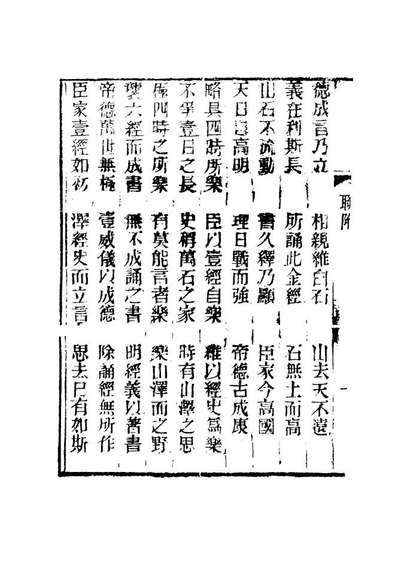 聯附
一
德成言乃立 相親維白石 山去天不遠
義在利斯長 所誦此金經 石無上而高
山石不流動 書久釋乃顯 臣家今高國
天日自高明 理日戰而強 帝德古成康
略具四時所樂 臣以壹經自樂 雖以經史爲樂
不爭壹日之長 史稱萬石之家 時有山澤之思
極四時之所樂 有莫能言者樂 樂山澤而之野
六經而成書 無不成誦之書 明經義以著書
帝德萬世無極 壹威儀以成德 除誦經無所作
臣家壹經如初 澤經史而立言 思去有如斯